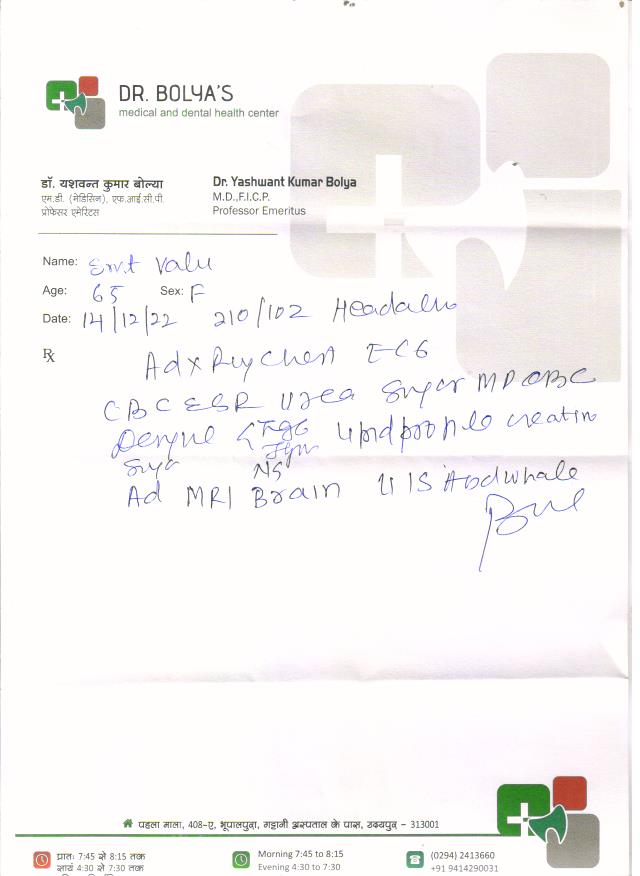 DR. BOLYA'S
medical and dental health center
डॉ. यशवन्त कुमार बोल्या
एम.डी. (मेडिसिन), एफ.आई.सी.पी.
प्रोफेसर एमेरिटस
Dr. Yashwant Kumar Bolya
M.D.,F.I.C.P.
Professor Emeritus
Name: Smt Valu
Age: 65 Sex: F
Date: 14/12/22 210/102 Headache
Rx
Ad X Ray Chest ECG
CBC ESR Urea Sugar MP CBC
Dengue IgG Lipid profile creatin
IgM
NS
Ad MRI Brain
पहला माला, 408-ए, भूपालपुरा, गट्टानी अस्पताल के पास, उदयपुर - 313001
प्रातः 7:45 से 8:15 तक
सायं 4:30 से 7:30 तक
Morning 7:45 to 8:15
Evening 4:30 to 7:30
(0294) 2413660
+91 9414290031